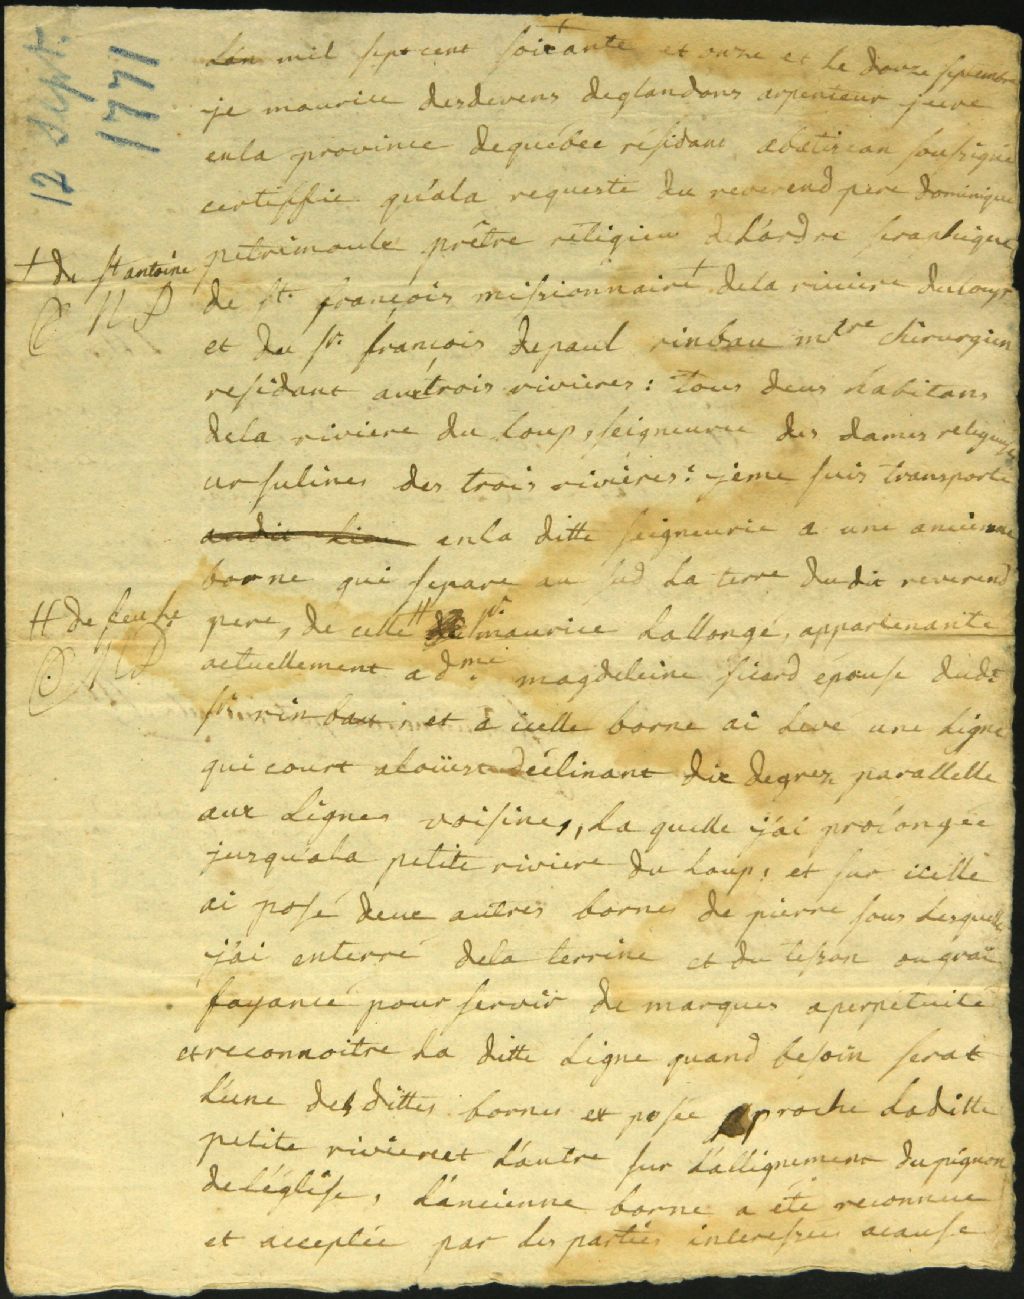 12 Sept. 1771
L'an mil sept cent soixante et onze et le douze septembre
je maurice desdevens deglandons arpenteur juré
en la province dequébec résidant abatiscan soussigné
certiffie qu'ala requeste du reverend pere dominique
petrimoulx prêtre religieu de L'ordre seraphique
de st. françois missionnaire † dela riviere du loup
† de st antoine
M D
et du sr. françois depaul rinbau mtre chirurgien
residant aux trois rivieres : tous deux habitans
dela riviere du Loup, seigneurie des dames religieuses
ursulines des trois rivières : jeme suis transporté
audit Lieu enla ditte seigneurie a une ancienne
borne qui separe au sud La terre dudit reverend
pere, de celle H sr. maurice Lallongé, appartenante
H de feu le
M D
actuellement a dme. magdeleine sicard épouse dudt
sr. rinbau, et a icelle borne ai Levé une Ligne
qui court aloüest déclinant dix degrez parallelle
aux Lignes voisines, La quelle j'ai prolongée
jusqu'ala petite riviere du Loup, et sur icelle
ai posé deux autres bornes de pierre sous Lesquelles
j'ai enterré dela terrine et du tesson ou
fayance pour servir de marques a perpetuité
et reconnoitre La ditte Ligne quand besoin serat
L'une des dittes bornes et posée proche Laditte
petite riviere et L'autre sur L'allignement du pignon
de L'église, L'ancienne borne a été reconnue
et acceptée par les parties interessées acause